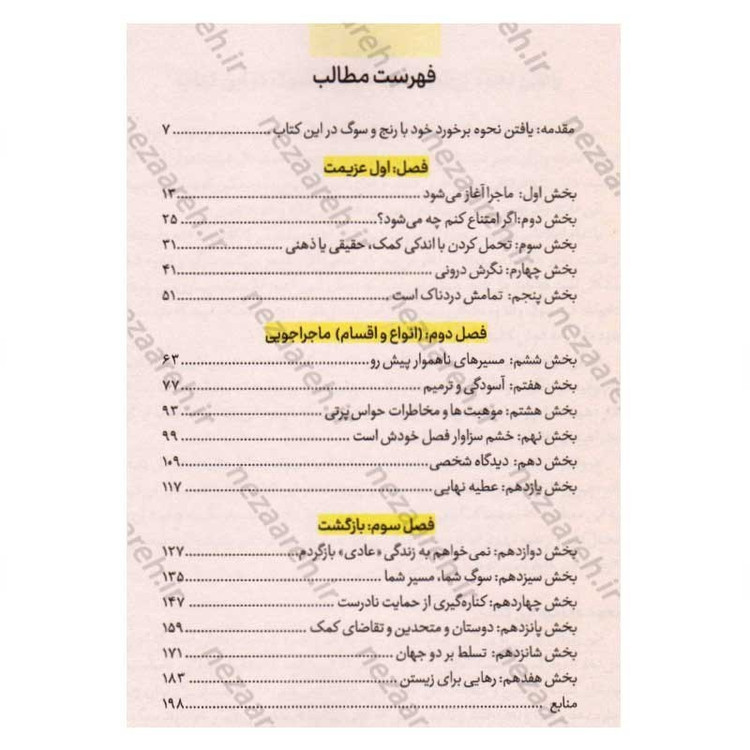 فهرست مطالب
مقدمه: یافتن نحوه برخورد خود با رنج و سوگ در این کتاب ........................ ۷
فصل: اول عزیمت
بخش اول: ماجرا آغاز می‌شود ........................ ۱۳
بخش دوم:اگر امتناع کنم چه می‌شود؟ ........................ ۲۵
بخش سوم: تحمل کردن با اندکی کمک، حقیقی یا ذهنی ........................ ۳۱
بخش چهارم: نگرش درونی ........................ ۴۱
بخش پنجم: تمامش دردناک است ........................ ۵۱
فصل دوم: (انواع و اقسام) ماجراجویی
بخش ششم: مسیرهای ناهموار پیش رو ........................ ۶۳
بخش هفتم: آسودگی و ترمیم ........................ ۷۷
بخش هشتم: موهبت ها و مخاطرات حواس پرتی ........................ ۹۳
بخش نهم: خشم سزاوار فصل خودش است ........................ ۹۹
بخش دهم: دیدگاه شخصی ........................ ۱۰۹
بخش یازدهم: عطیه نهایی ........................ ۱۱۷
فصل سوم: بازگشت
بخش دوازدهم: نمی‌خواهم به زندگی «عادی» بازگردم ........................ ۱۲۷
بخش سیزدهم: سوگ شما، مسیر شما ........................ ۱۳۵
بخش چهاردهم: کناره‌گیری از حمایت نادرست ........................ ۱۴۷
بخش پانزدهم: دوستان و متحدین و تقاضای کمک ........................ ۱۵۹
بخش شانزدهم: تسلط بر دو جهان ........................ ۱۷۱
بخش هفدهم: رهایی برای زیستن ........................ ۱۸۳
منابع ........................ ۱۹۸
nezaareh.ir